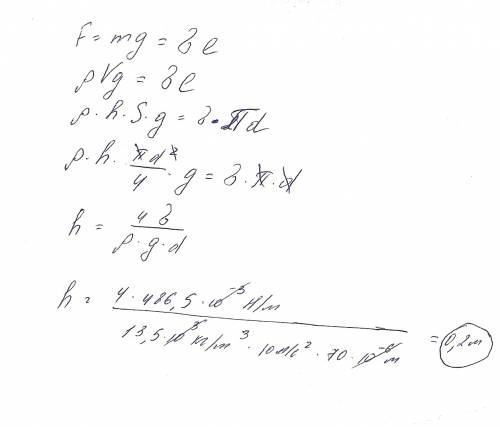 F = mg = б l
ρVg = б l
ρ · h · S · g = б · πd
ρ · h · πd²/4 · g = б · π · d
h = 4б / ρ · g · d
h = 4 · 486,5 · 10⁻³ Н/м / 13,5 · 10³ кг/м³ · 10 м/с² · 70 · 10⁻⁶ м = 0,2 м